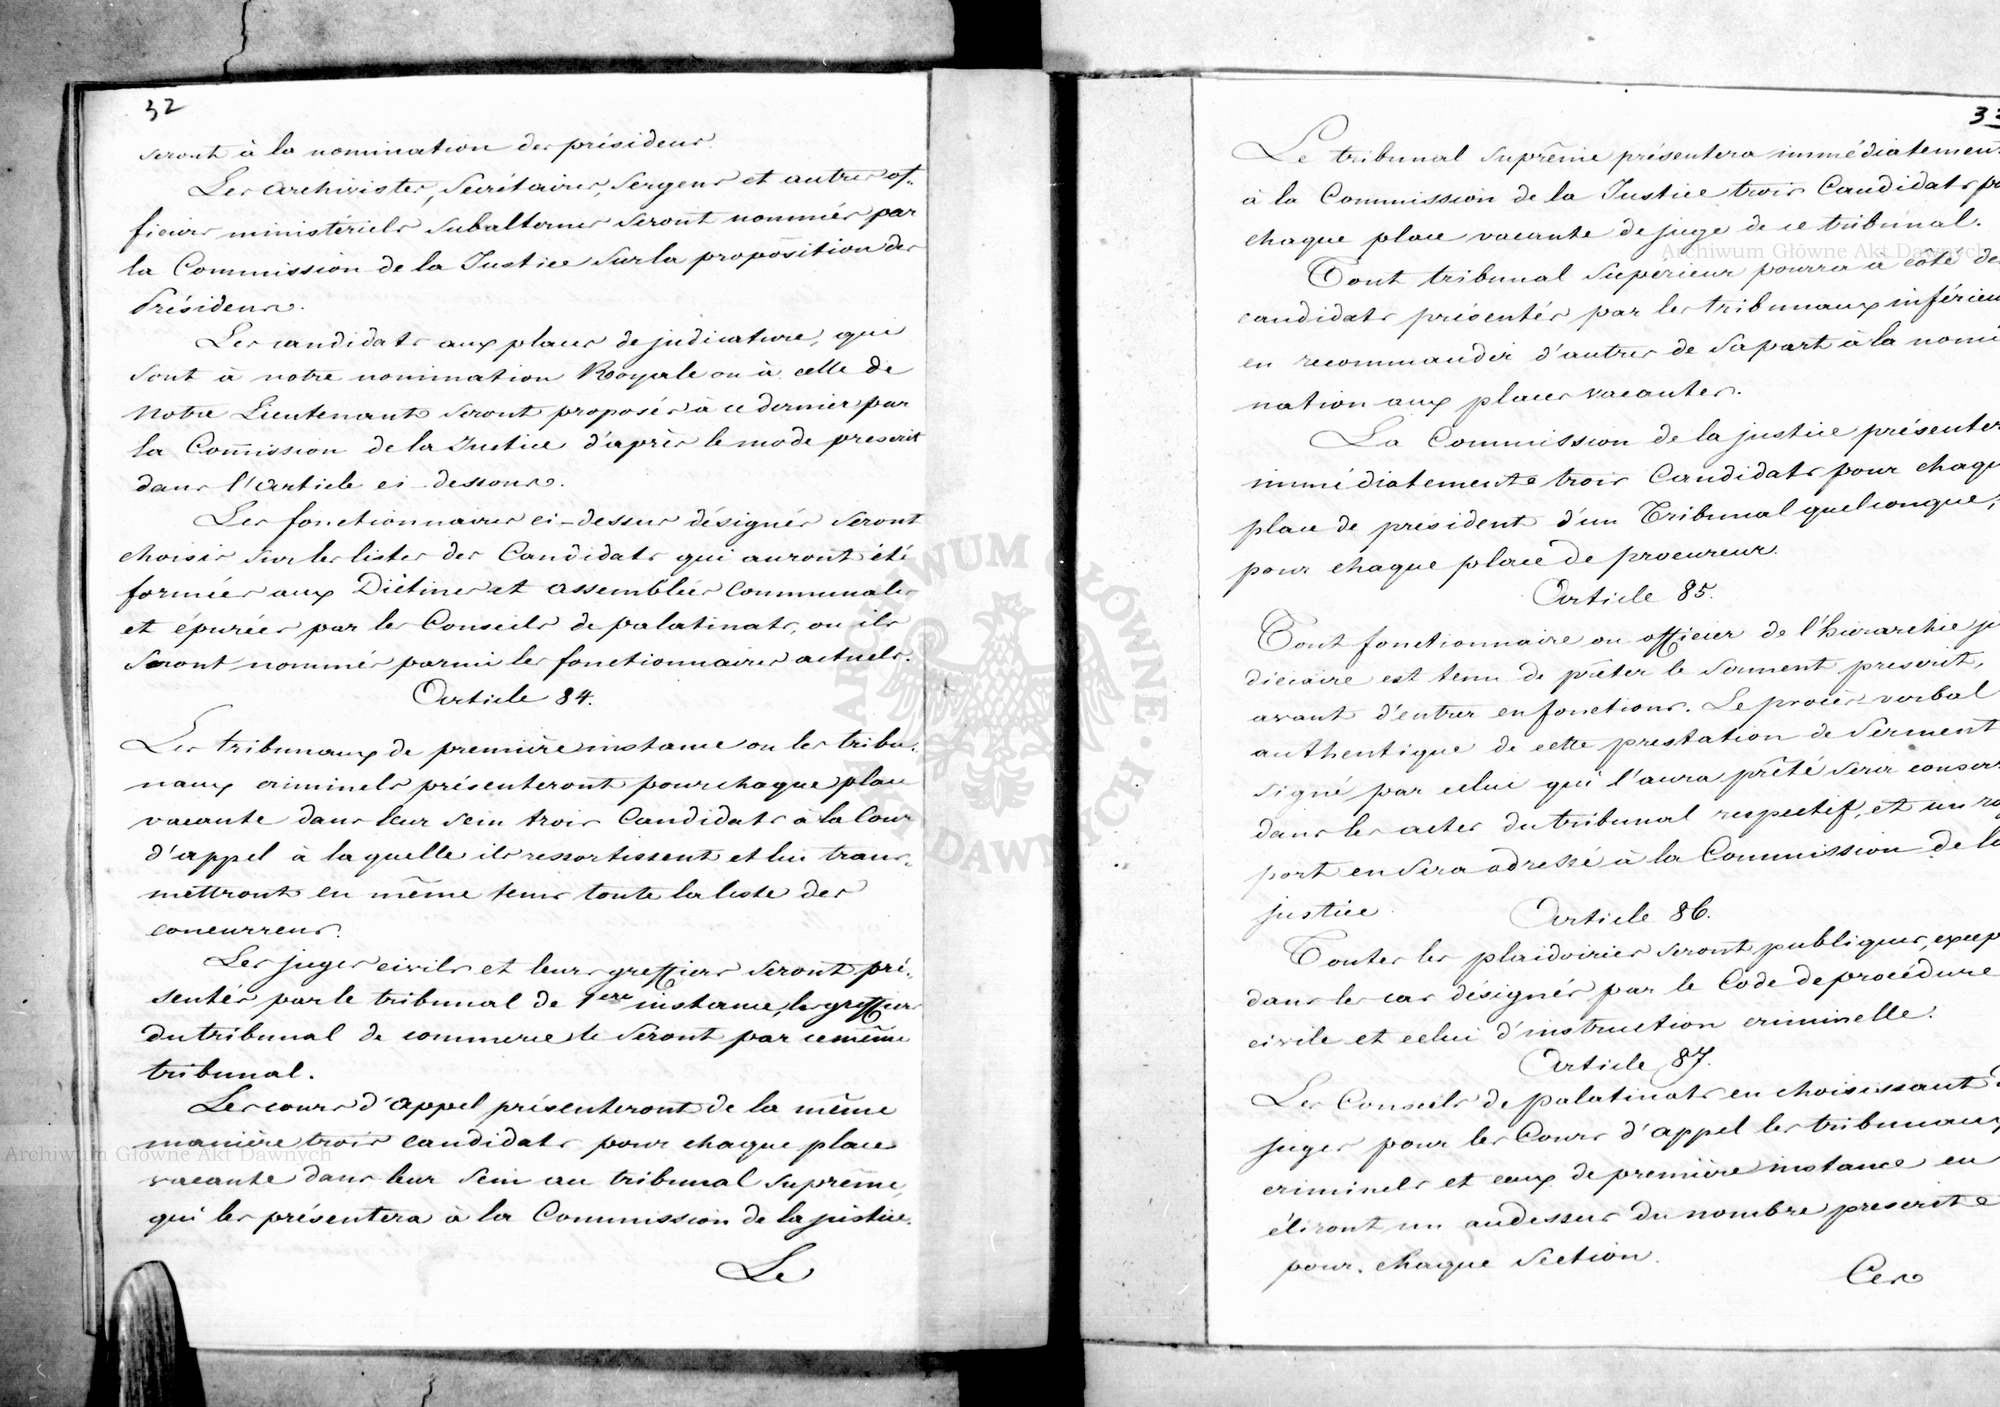 32
seront à la nomination des présidens.
Les archivistes, Secrétaires, Sergens et autres of-
ficiers ministériels subalternes seront nommés par
la Commission de la Justice sur la proposition des
Présidens.
Les candidats aux places de judicature, qui
sont à notre nomination Royale ou à celle de
Notre Lieutenant seront proposés à ce dernier par
la Com̄ission de la Justice d'après le mode prescrit
dans l'article ci-dessous.
Les fonctionnaires ci-dessus désignés seront
choisis sur les listes des Candidats qui auront été
formées aux Diétines et assemblées Communales
et épurées par les Conseils de palatinats, ou ils
seront nommés parmi les fonctionnaires actuels.
Article 84.
Les tribunaux de première instance ou les tribu-
naux criminels présenteront pour chaque place
vacante dans leur sein trois Candidats à la Cour
d'appel à laquelle ils ressortissent et lui trans-
mettront en même tems toute la liste des
concurrens.
Les juges civils et leurs greffiers seront pré-
sentés par le tribunal de 1ere instance, les greffiers
du tribunal de commerce le seront par ce même
tribunal.
Les cours d'appel présenteront de la même
manière trois candidats pour chaque place
vacante dans leur sein au tribunal Suprême,
qui les présentera à la Commission de la justice.
Le
33
Le tribunal Suprême présentera immédiatement
à la Commission de la Justice trois Candidats po
chaque place vacante de juge de ce tribunal.
Tout tribunal Supérieur pourra à côté des
candidats présentés par les tribunaux inférieu
en recommander d'autres de sa part à la nomi
nation aux places vacantes.
La Commission de la justice présenter
immédiatement trois Candidats pour chaqu
place de président d'un Tribunal quelconque,
pour chaque place de procureur.
Article 85.
Tout fonctionnaire ou officier de l'hierarchie ju
diciaire est tenu de prêter le serment prescrit,
avant d'entrer en fonctions. Le procès-verbal
authentique de cette prestation de Serment
signé par celui qui l'aura prêté sera conser
dans les actes du tribunal respectif, et un ra
port en sera adressé à la Commission de la
justice.
Article 86.
Toutes les plaidoiries seront publiques, excep
dans les cas désignés par le Code de procédure
civile et celui d'instruction criminelle.
Article 87.
Les Conseils de palatinats en choisissant
juges pour les Cours d'appel les tribunaux
criminels et ceux de première instance en
éliront un audessus du nombre prescrit
pour chaque Section.
Ces
Archiwum Główne Akt Dawnych
Archiwum Główne Akt Dawnych
ARCHIWUM GŁÓWNE AKT DAWNYCH